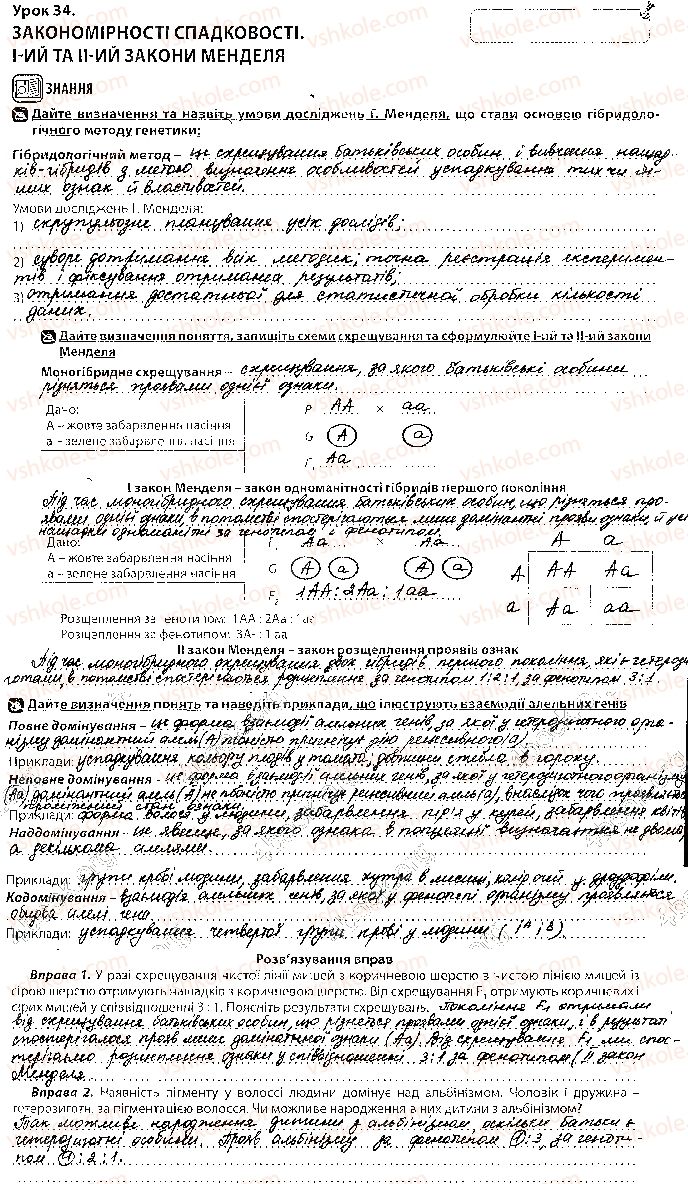 Урок 34.
ЗАКОНОМІРНОСТІ СПАДКОВОСТІ.
І-ИЙ ТА ІІ-ИЙ ЗАКОНИ МЕНДЕЛЯ
ЗНАННЯ
Дайте визначення та назвіть умови досліджень Г. Менделя, що стали основою гібридоло-
гічного методу генетики:
Гібридологічний метод – це схрещування батьківських особин і вивчення нащад-
ків-гібридів з метою визначення особливостей успадкування тих чи ін-
ших ознак й властивостей.
Умови досліджень Г. Менделя:
1) скрупульозне планування усіх дослідів;
2) суворе дотримання вим. методик; точна реєстрація експеримен-
тів і фіксування отриманих результатів;
3) отримання достатньої для статистичної обробки кількості
даних.
Дайте визначення поняття, запишіть схеми схрещування та сформулюйте І-ий та ІІ-ий закони
Менделя
Моногібридне схрещування – схрещування, за якого батьківські особини
різняться проявами однієї ознаки.
Дано:
А – жовте забарвлення насіння
а – зелене забарвлення насіння
P AA × aa
G A a
F₁ Aa
І закон Менделя – закон одноманітності гібридів першого покоління
Під час моногібридного схрещування батьківських особин, що різняться про-
явами однієї ознаки, в потомстві спостерігаються лише домінантні прояви ознаки, й усі
нащадки одноманітні за генотипом і фенотипом.
Дано:
А – жовте забарвлення насіння
а – зелене забарвлення насіння
Aa × Aa
G A a A a
F₂ 1AA : 2Aa : 1aa
A a
A AA Aa
a Aa aa
Розщеплення за генотипом: 1АА : 2Аа : 1аа
Розщеплення за фенотипом: 3А- : 1 аа
ІІ закон Менделя – закон розщеплення проявів ознак
Під час моногібридного схрещування двох гібридів першого покоління, які є гетерози-
готами, в потомстві спостерігається розщеплення за генотипом 1:2:1, за фенотипом 3:1.
Дайте визначення понять та наведіть приклади, що ілюструють взаємодії алельних генів
Повне домінування – це форма взаємодії алельних генів, за якої у гетерозиготного орга-
нізму домінантний алель (А) повністю пригнічує дію рецесивного (а).
Приклади: успадкування кольору плодів у томата, довжини стебла в гороху.
Неповне домінування - це форма взаємодії алельних генів, за якої у гетерозиготного організму
(Аа) домінантний алель (А) не повністю пригнічує рецесивний алель (а), внаслідок чого проявляється
проміжний стан ознаки.
Приклади: форма волосся у людини, забарвлення пір'я у курей, забарвлення квітів
Наддомінування - це явище, за якого ознака в популяції визначається не двома,
а декількома алелями.
Приклади: групи крові людини, забарвлення хутра в лисиці, колір очей у дрозофіли.
Кодомінування – взаємодія алельних генів, за якої у фенотипі організму проявляються
обидва алелі гена.
Приклади: успадкування четвертої групи крові у людини (Iᴬ Iᴮ).
Розв'язування вправ
Вправа 1. У разі схрещування чистої лінії мишей з коричневою шерстю з чистою лінією мишей із
сірою шерстю отримують нащадків з коричневою шерстю. Від схрещування F₁ отримують коричневих і
сірих мишей у співвідношенні 3 : 1. Поясніть результати схрещувань. Покоління F₁ отримали
від схрещування батьківських особин, що різняться проявами однієї ознаки, і в результаті
спостерігалося прояв лише домінантної ознаки (Аа). Від схрещування F₁ ми спос-
терігаємо розщеплення ознаки у співвідношенні 3:1 за фенотипом (ІІ закон
Менделя
Вправа 2. Наявність пігменту у волоссі людини домінує над альбінізмом. Чоловік і дружина –
гетерозиготи за пігментацією волосся. Чи можливе народження в них дитини з альбінізмом?
Так можливе народження дитини з альбінізмом, оскільки батьки є
гетерозиготні особини. Прояв альбінізму за фенотипом 1:3, за геноти-
пом 1:2:1.